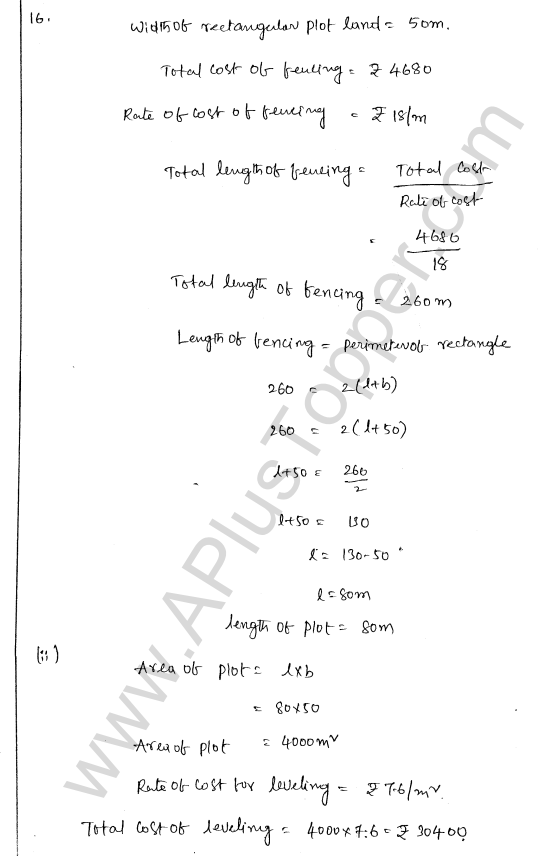 16.
Width of rectangular plot land = 50m.
Total cost of fencing = ₹ 4680
Rate of cost of fencing = ₹ 18/m
Total length of fencing = Total cost / Rate of cost
= 4680 / 18
Total length of fencing = 260m
Length of fencing = perimeter of rectangle
260 = 2(l+b)
260 = 2(l+50)
l+50 = 260 / 2
l+50 = 130
l = 130-50
l = 80m
length of plot = 80m
(ii)
Area of plot = l×b
= 80×50
Area of plot = 4000m²
Rate of cost for leveling = ₹ 7.6/m².
Total cost of leveling = 4000×7.6 = ₹ 30400.
www.APlusTopper.com